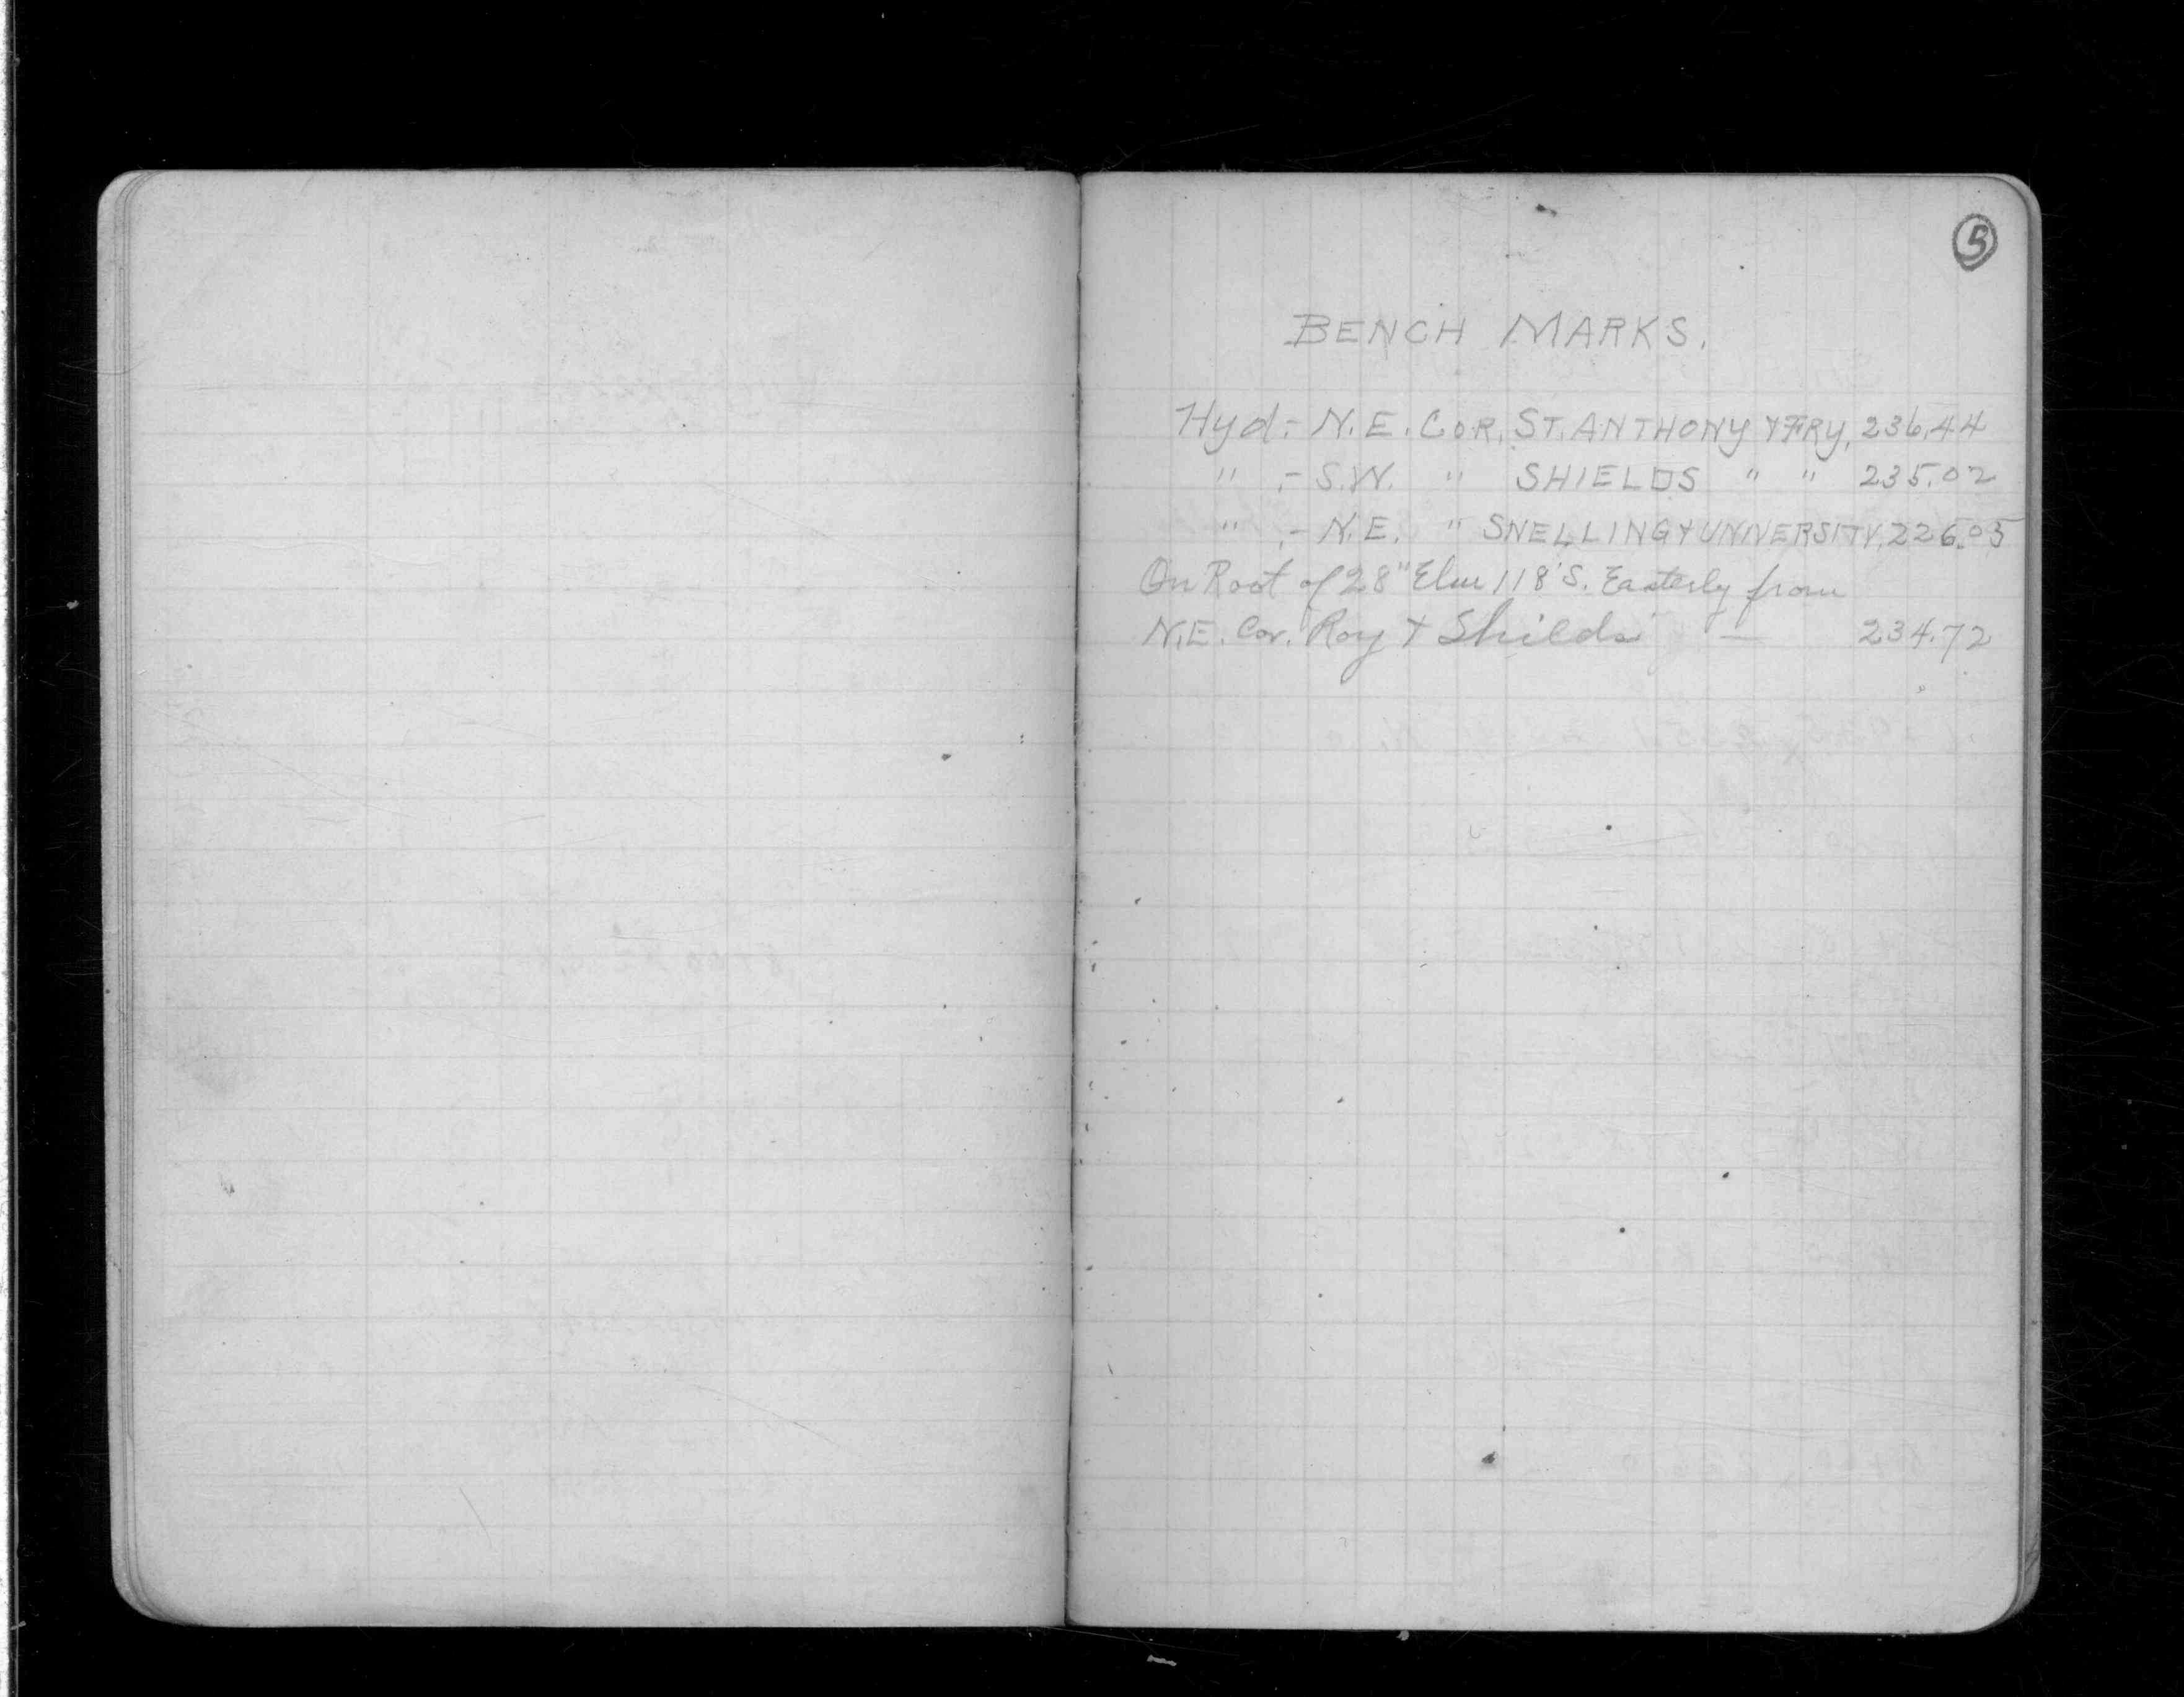 5
BENCH MARKS.
Hyd:- N.E. COR. ST. ANTHONY & FRY, 236.44
" :- S.W. " SHIELDS " " 235.02
" :- N.E. " SNELLING & UNIVERSITY, 226.05
On Root of 28" Elm 118' S. Easterly from
N.E. Cor. Roy & Shilds — 234.72